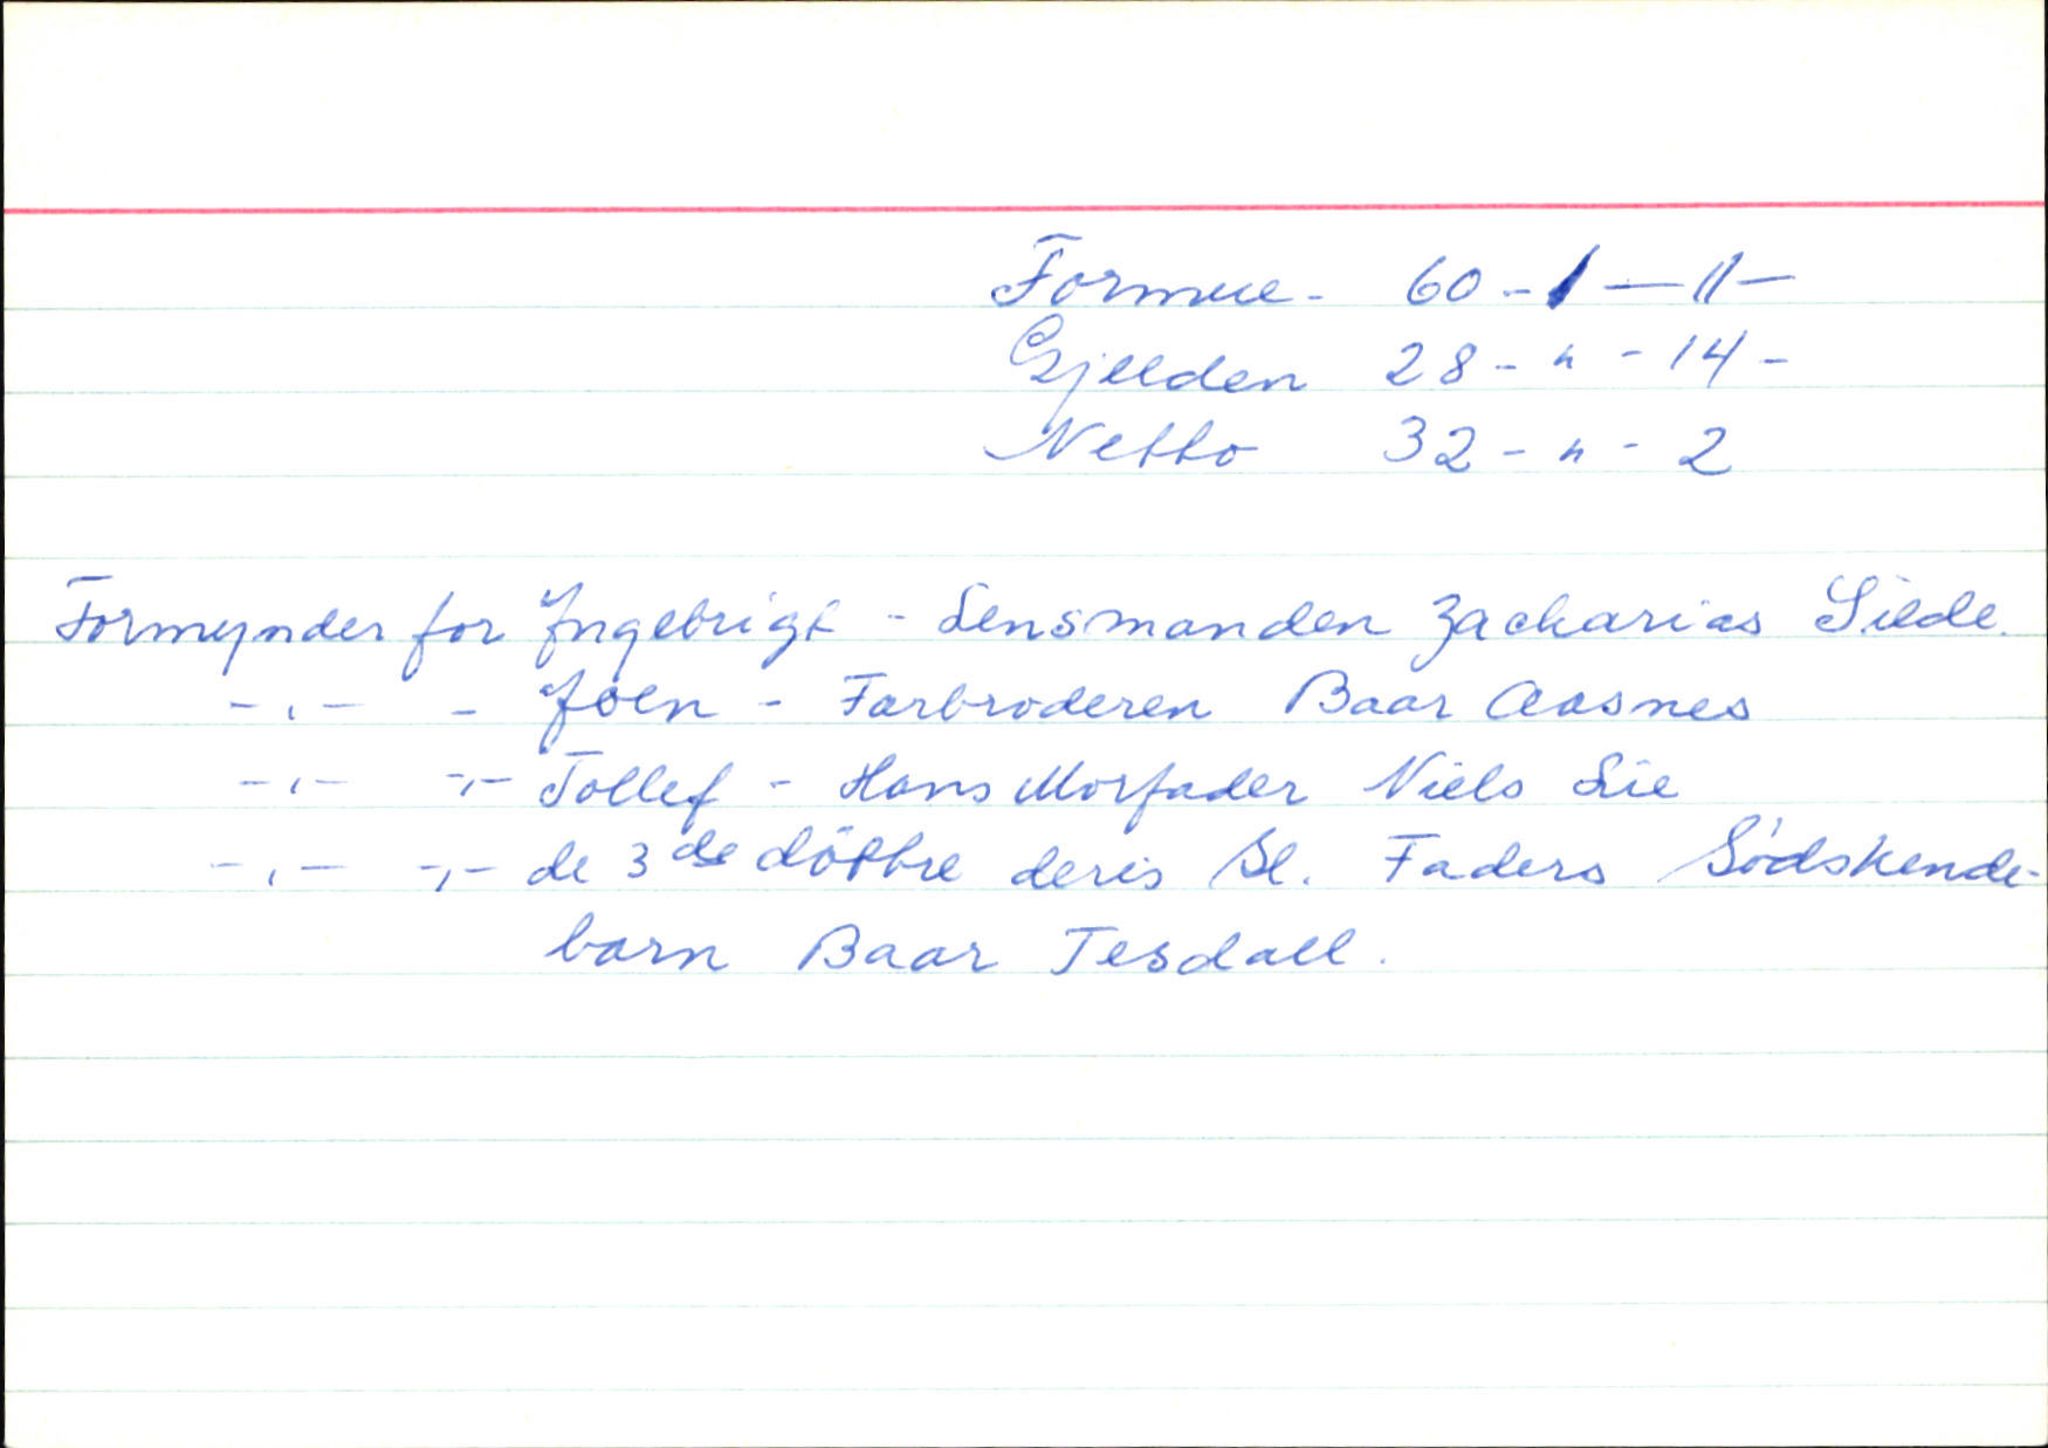 Formue - 60 - 1 — 11 -
Gjelden 28 - " - 14 -
Netto 32 - " - 2
Formynder for Ingebrigt - Lensmanden Zacharias Silde.
- , - - Joen - Farbroderen Baar Aasnes
- , - - , - Tollef - Hans Morfader Niels Lie
- , - - , - de 3 de döttre deris Sl. Faders Södskende-
barn Baar Tesdall.